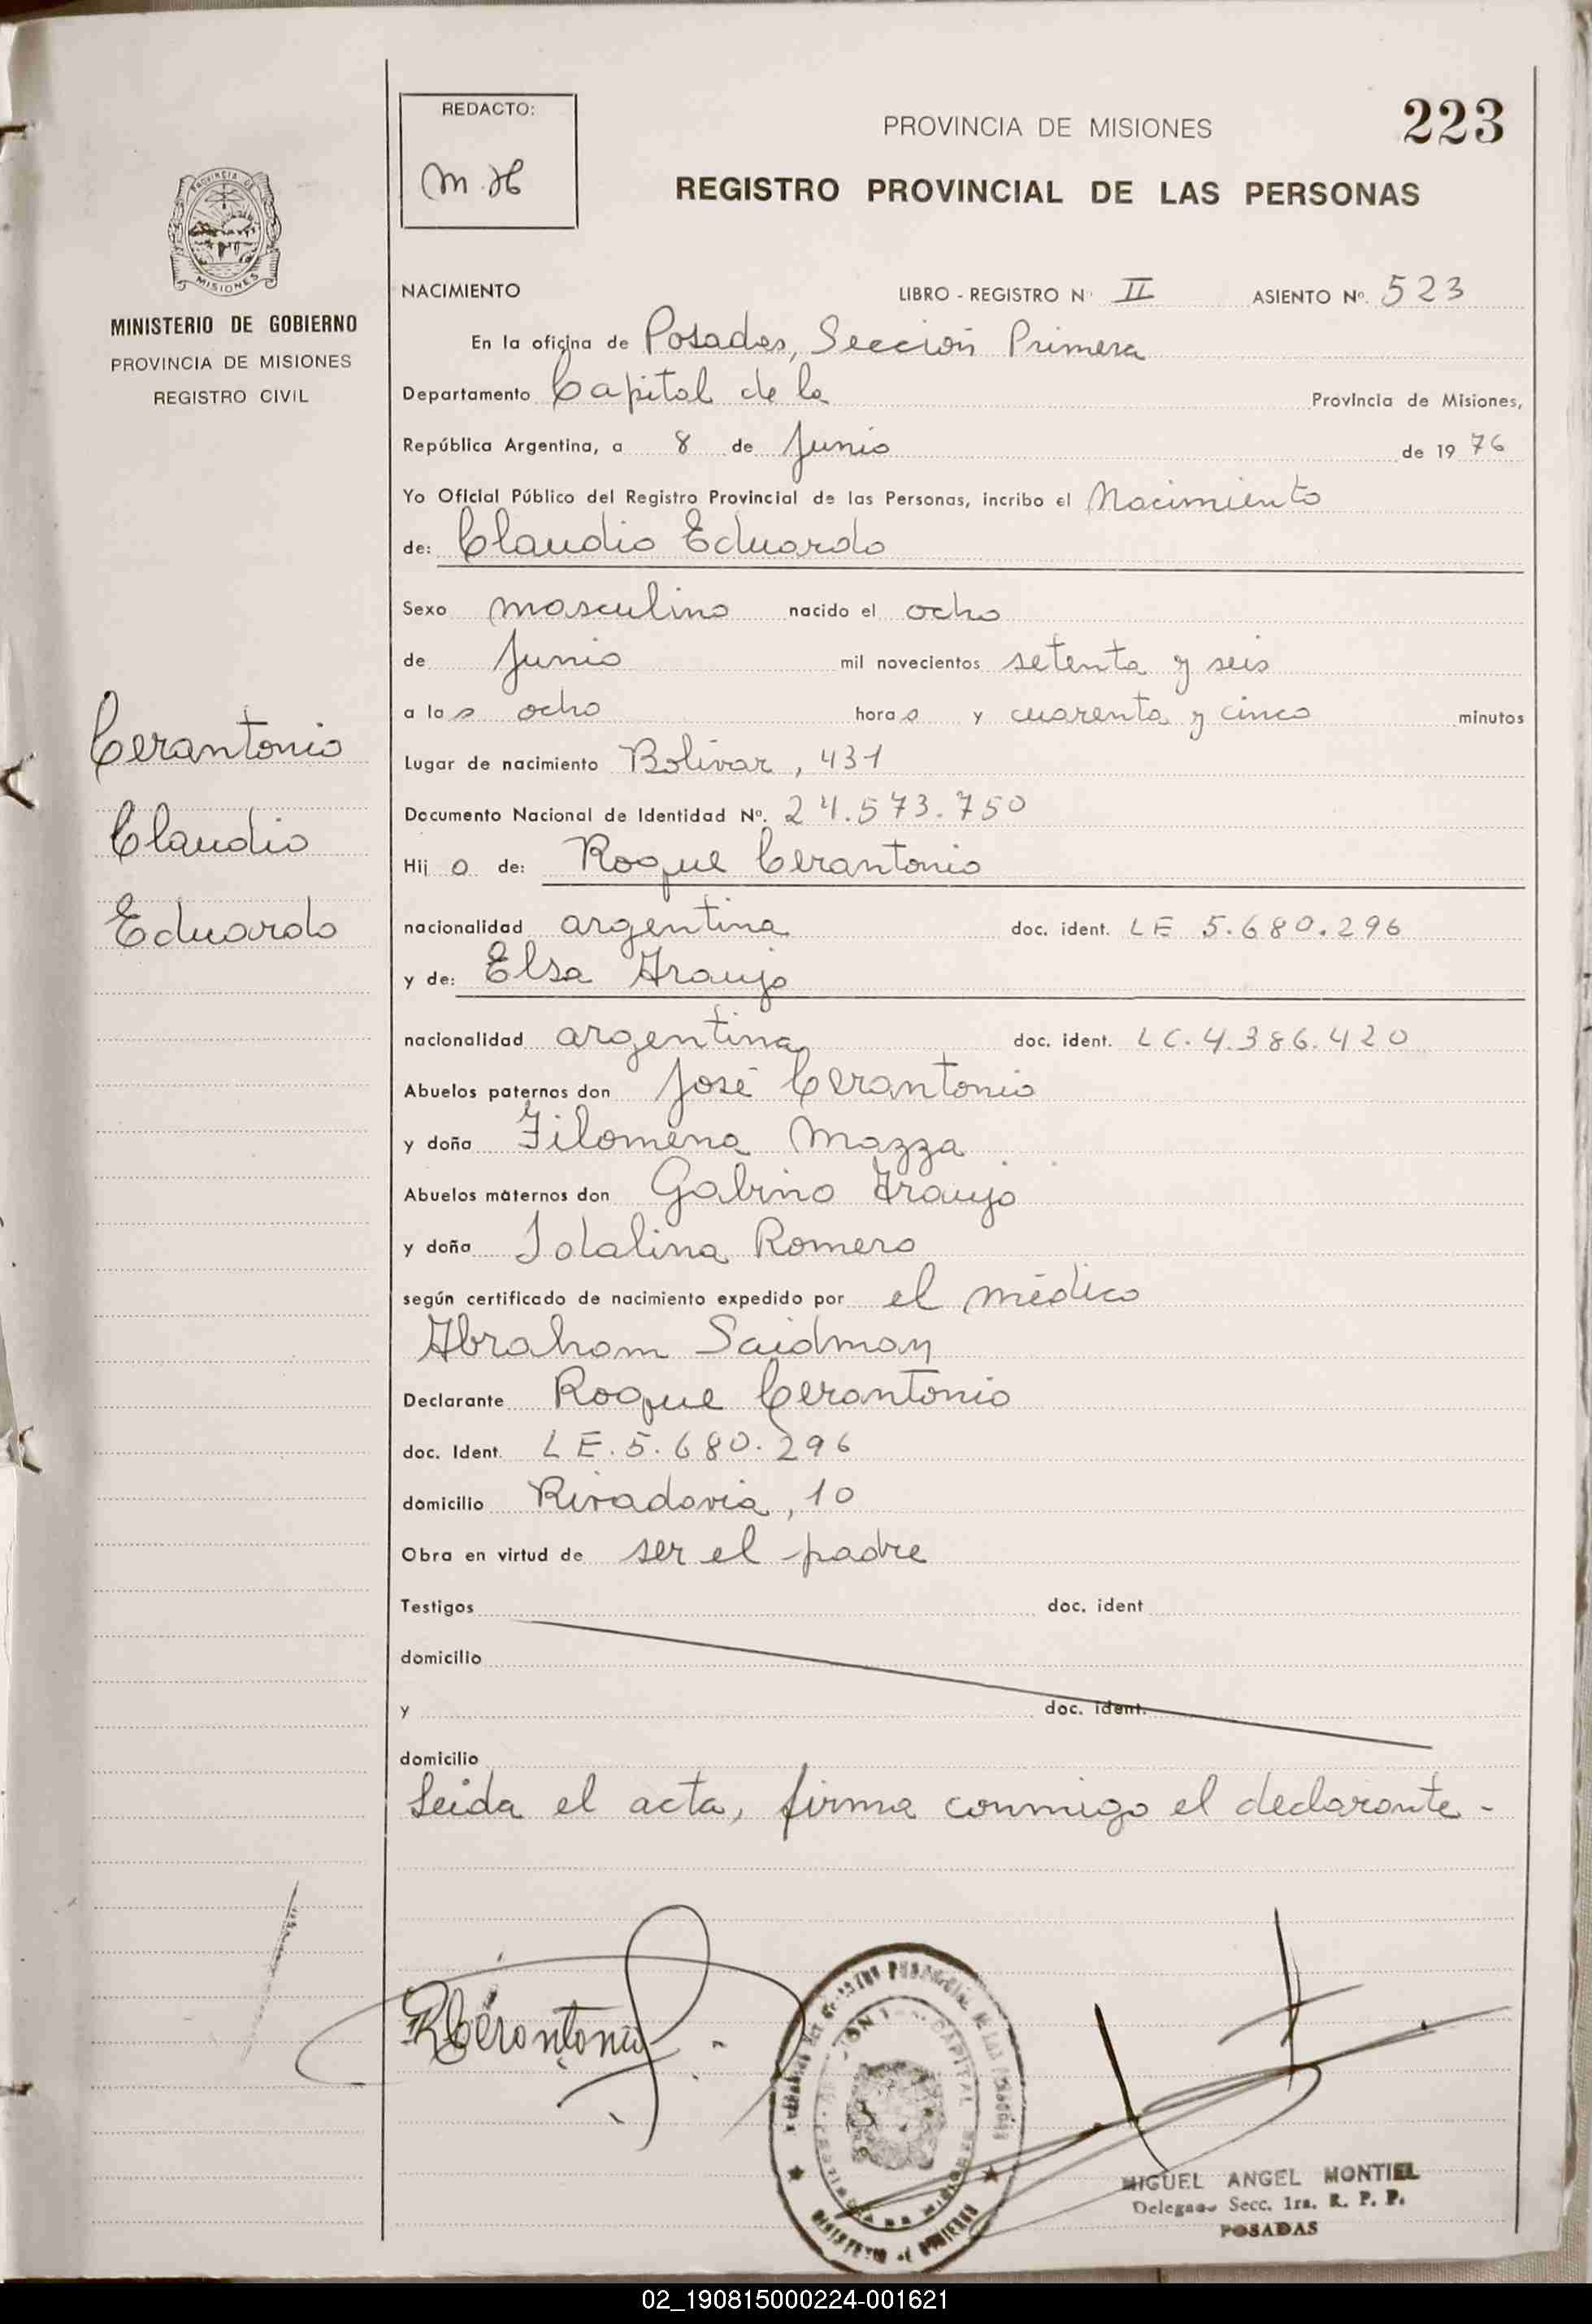 223
REDACTO:
M.H
PROVINCIA DE MISIONES
REGISTRO PROVINCIAL DE LAS PERSONAS
PROVINCIA DE
MISIONES
MINISTERIO DE GOBIERNO
PROVINCIA DE MISIONES
REGISTRO CIVIL
Cerantonio
Claudio
Eduardo
NACIMIENTO LIBRO - REGISTRO Nº II ASIENTO Nº. 523
En la oficina de Posadas, Sección Primera
Departamento Capital de la Provincia de Misiones,
República Argentina, a 8 de Junio de 1976
Yo Oficial Público del Registro Provincial de las Personas, incribo el Nacimiento
de: Claudio Eduardo
Sexo masculino nacido el ocho
de Junio mil novecientos setenta y seis
a las ocho horas y cuarenta y cinco minutos
Lugar de nacimiento Bolivar, 431
Documento Nacional de Identidad Nº. 24.573.750
Hijo de: Roque Cerantonio
nacionalidad argentina doc. ident. LE 5.680.296
y de: Elsa Araujo
nacionalidad argentina doc. ident. LC.4.386.420
Abuelos paternos don José Cerantonio
y doña Filomena Mazza
Abuelos maternos don Gabino Araujo
y doña Idalina Romero
según certificado de nacimiento expedido por el médico
Abraham Saidman
Declarante Roque Cerantonio
doc. Ident. LE.5.680.296
domicilio Rivadavia, 10
Obra en virtud de ser el padre
Testigos doc. ident
domicilio
y doc. ident.
domicilio
Leida el acta, firma conmigo el declarante-
RCerantonio
CAPITAL
MIGUEL ANGEL MONTIEL
Delegado Secc. 1ra. R. P. P.
POSADAS
02_190815000224-001621